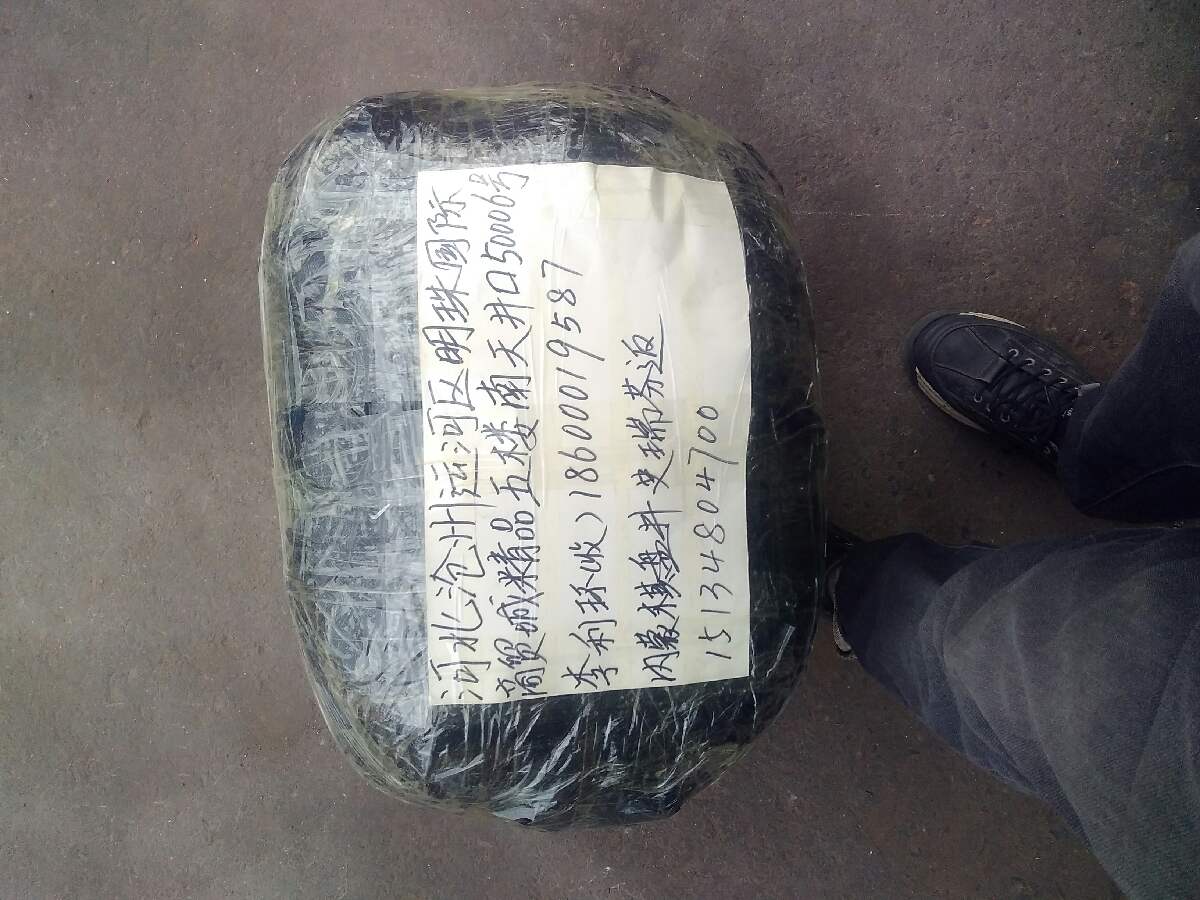 河北沧州运河区明珠国际
商贸城精品五楼南天井口50006号
李利环(收)18600019587
内蒙棋盘井 史瑞芬返
15134804700